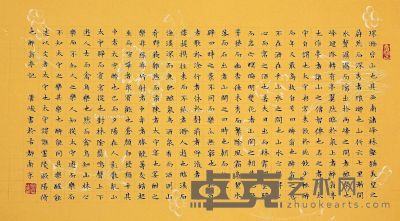 環滁皆山也其西南諸峰林壑尤美望之
蔚然而深秀者琅琊也山行六七里漸聞
水聲潺潺而瀉出於兩峰之間者釀泉也
峰迴路轉有亭翼然臨於泉上者醉翁亭
也作亭者誰山之僧智僊也名之者誰太
守自謂也太守與客來飲於此飲少輒醉
而年又最高故自號曰醉翁也醉翁之意
不在酒在乎山水之間也山水之樂得之
心而寓之酒也若夫日出而林霏開雲歸
而巖穴暝晦明變化者山間之朝暮也野
芳發而幽香佳木秀而繁陰風霜高潔水
落而石出者山間之四時也朝而往暮而
歸四時之景不同而樂亦無窮也至於負
者歌於途行者休於樹前者呼後者應傴
僂提攜往來而不絕者滁人遊也臨溪而
漁溪深而魚肥釀泉為酒泉香而酒洌山
肴野蔌雜然而前陳者太守宴也宴酣之
樂非絲非竹射者中弈者勝觥籌交錯起
坐而喧嘩者眾賓歡也蒼顏白髮頹然乎
其中者太守醉也已而夕陽在山人影散亂
太守歸而賓客從也樹林陰翳鳴聲上下
遊人去而禽鳥樂也然而禽鳥知山林之
樂而不知人之樂人知從太守遊而樂而
不知太守之樂其樂也醉能同其樂醒能
述以文者太守也太守謂誰廬陵歐陽修
也醉翁亭記
書於古都南京
卓克艺术网